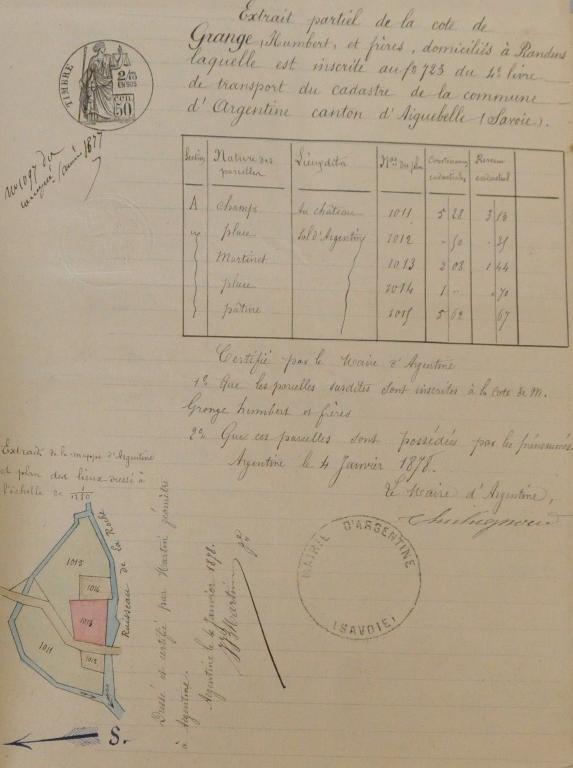 Extrait partiel de la cote de
Grange, Humbert, et frères, domiciliés à Randens
laquelle est inscrite au fo 723 du 4e livre
de transport du cadastre de la commune
d'Argentine canton d'Aiguebelle (Savoie).
TIMBRE
2/10 EN SUS
50 cen
No 1097 du
année 1877
Section Nature des parcelles Lieux dits Nos du plan Contenance cadastrale Revenu cadastral
A champs Au château 1011 5 28 3 18
place Sal d'Argentine 1012 " 50 " 35
Martinet 1013 2 08 1 44
place 1014 1 " " 70
pâture 1015 5 62 " 67
Certifié par le Maire d'Argentine
1o Que les parcelles susdites sont inscrites à la cote de M.
Grange humbert et frères
2o Que ces parcelles sont possédées par les prénommés
Argentine le 4 Janvier 1878.
Le Maire d'Argentine,
MAIRIE D'ARGENTINE
(SAVOIE)
Extrait de la mappe d'Argentine
et plan des lieux dressé à
l'échelle de
1015
1014
1013
1011
1012
Ruisseau de la Roche
S.
Dressé et certifié par Martin géomètre
à Argentine.
Argentine le 4 Janvier 1878.
Martin